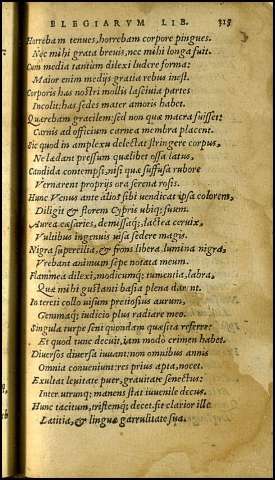 ELEGIARVM LIB. 315
Horrebam tenues, horrebam corpore pingues.
Nec mihi grata breuis, nec mihi longa fuit.
Cum media tantùm dilexi ludere forma:
Maior enim medijs gratia rebus inest.
Corporis has nostri mollis lasciuia partes
Incolit: has sedes mater amoris habet.
Quærebam gracilem: sed non quæ macra fuisset:
Carnis ad officium carnea membra placent.
Sic quod in amplexu delectat stringere corpus,
Ne lædant pressum quælibet ossa latus,
Candida contempsi, nisi quæ suffusa rubore
Vernarent proprijs ora serena rosis.
Hunc Venus ante alios sibi vendicat ipsa colorem,
Diligit & florem Cypris ubiq; suum.
Aurea cæsaries, demissaq; lactea ceruix,
Vultibus ingenuis uisa sedere magis.
Nigra supercilia, & frons libera, lumina nigra,
Vrebant animum sepe notata meum.
Flammea dilexi, modicumq; tumentia, labra,
Quæ mihi gustanti basia plena darent.
In tereti collo uisum pretiosius aurum,
Gemmaq; iudicio plus radiare meo.
Singula turpe seni quondam quæsita referre:
Et quod tunc decuit, iam modò crimen habet.
Diuersos diuersa iuuant: non omnibus annis
Omnia conueniunt: res prius apta, nocet.
Exultat leuitate puer, grauitate senectus:
Inter utrunq; manens stat iuuenile decus.
Hunc tacitum, tristemq; decet: fit clarior ille
Lætitia, & linguæ garrulitate suæ.